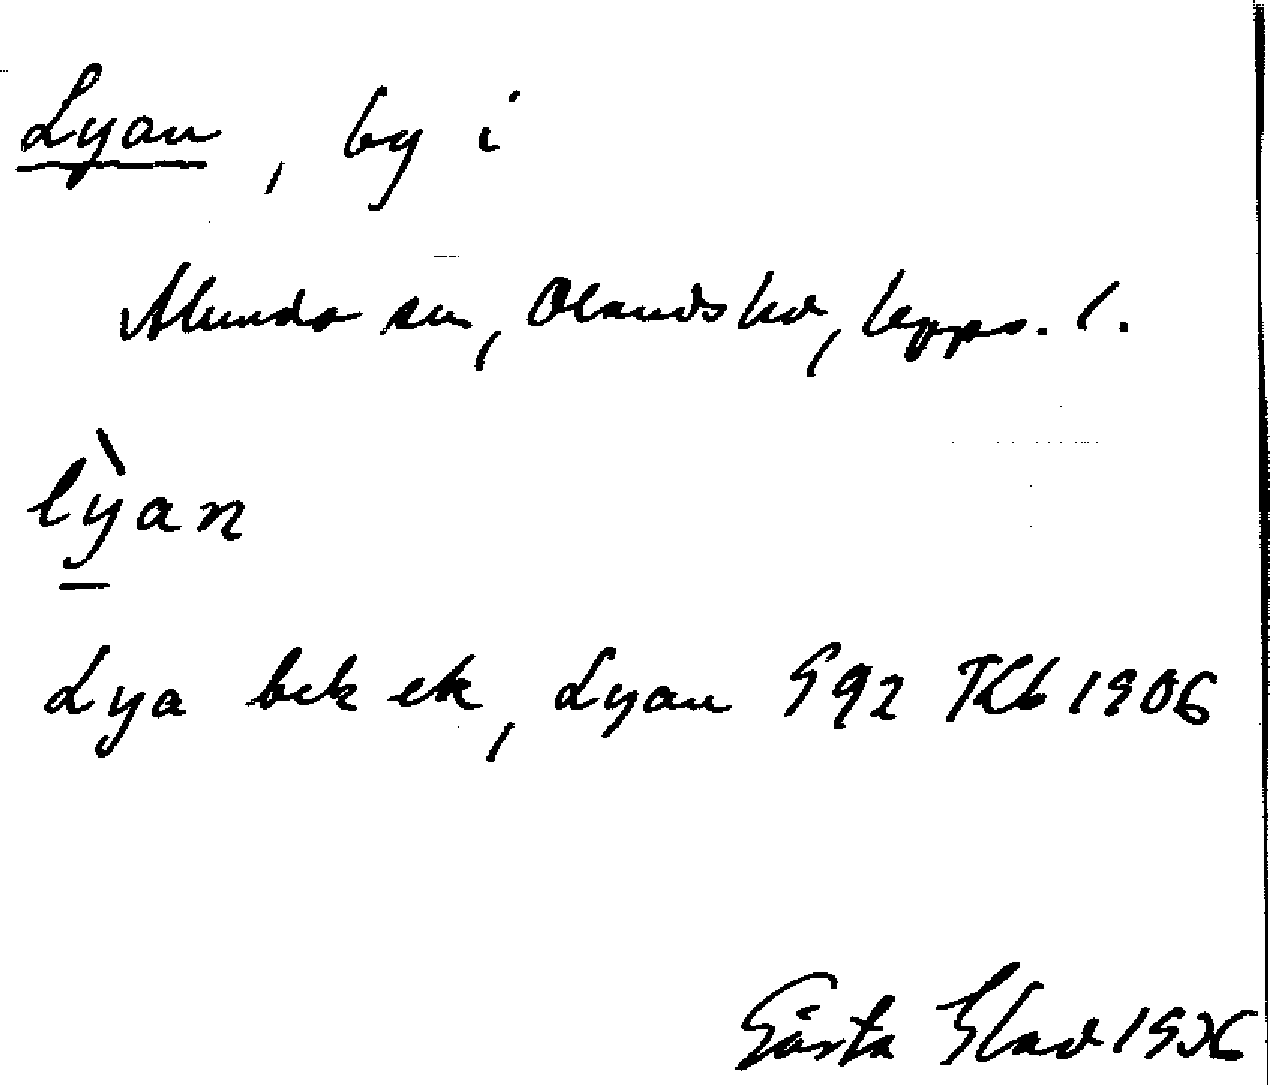 Lyan, by i
Alunda sn, Olands hd, Upps. l.
lỳan
Lya bek ek, Lyan G92 TKb 1906
Gösta Blad 1936